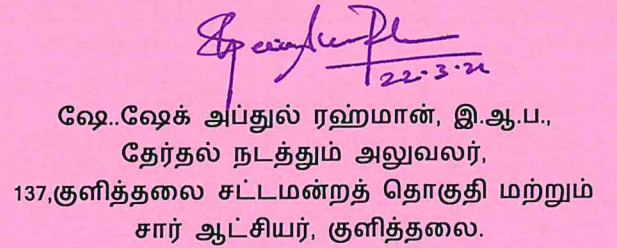 22-3-21
ஷே..ஷேக் அப்துல் ரஹ்மான், இ.ஆ.ப.,
தேர்தல் நடத்தும் அலுவலர்,
137,குளித்தலை சட்டமன்றத் தொகுதி மற்றும்
சார் ஆட்சியர், குளித்தலை.